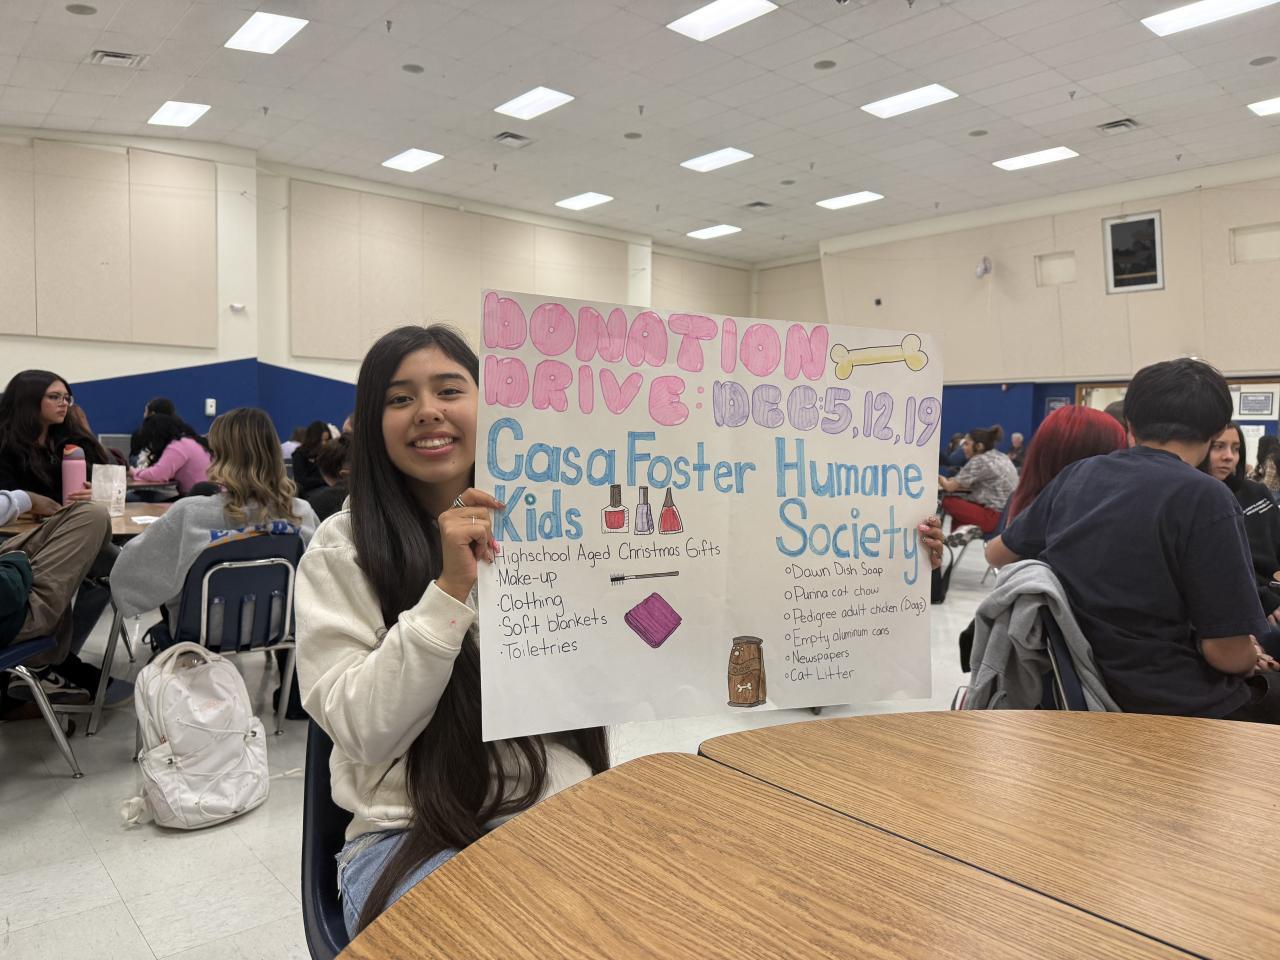 DONATION
DRIVE: DEC: 5, 12, 19
Casa Foster
Kids
Highschool Aged Christmas Gifts
· Make-up
· Clothing
· Soft blankets
· Toiletries
Humane
Society
○ Dawn Dish Soap
○ Purina cat chow
○ Pedigree adult chicken (Dogs)
○ Empty aluminum cans
○ Newspapers
○ Cat Litter